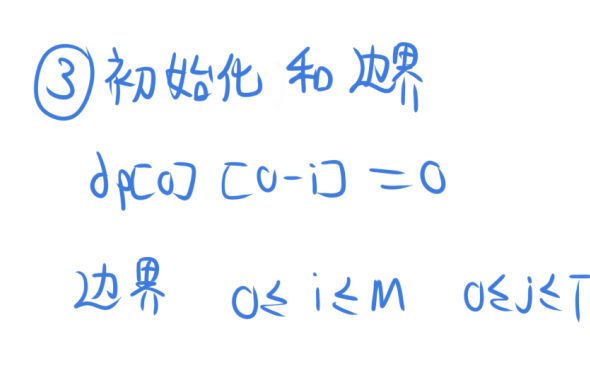 ③初始化和边界
dp[0][0-i]=0
边界 0≤i≤M 0≤j≤T